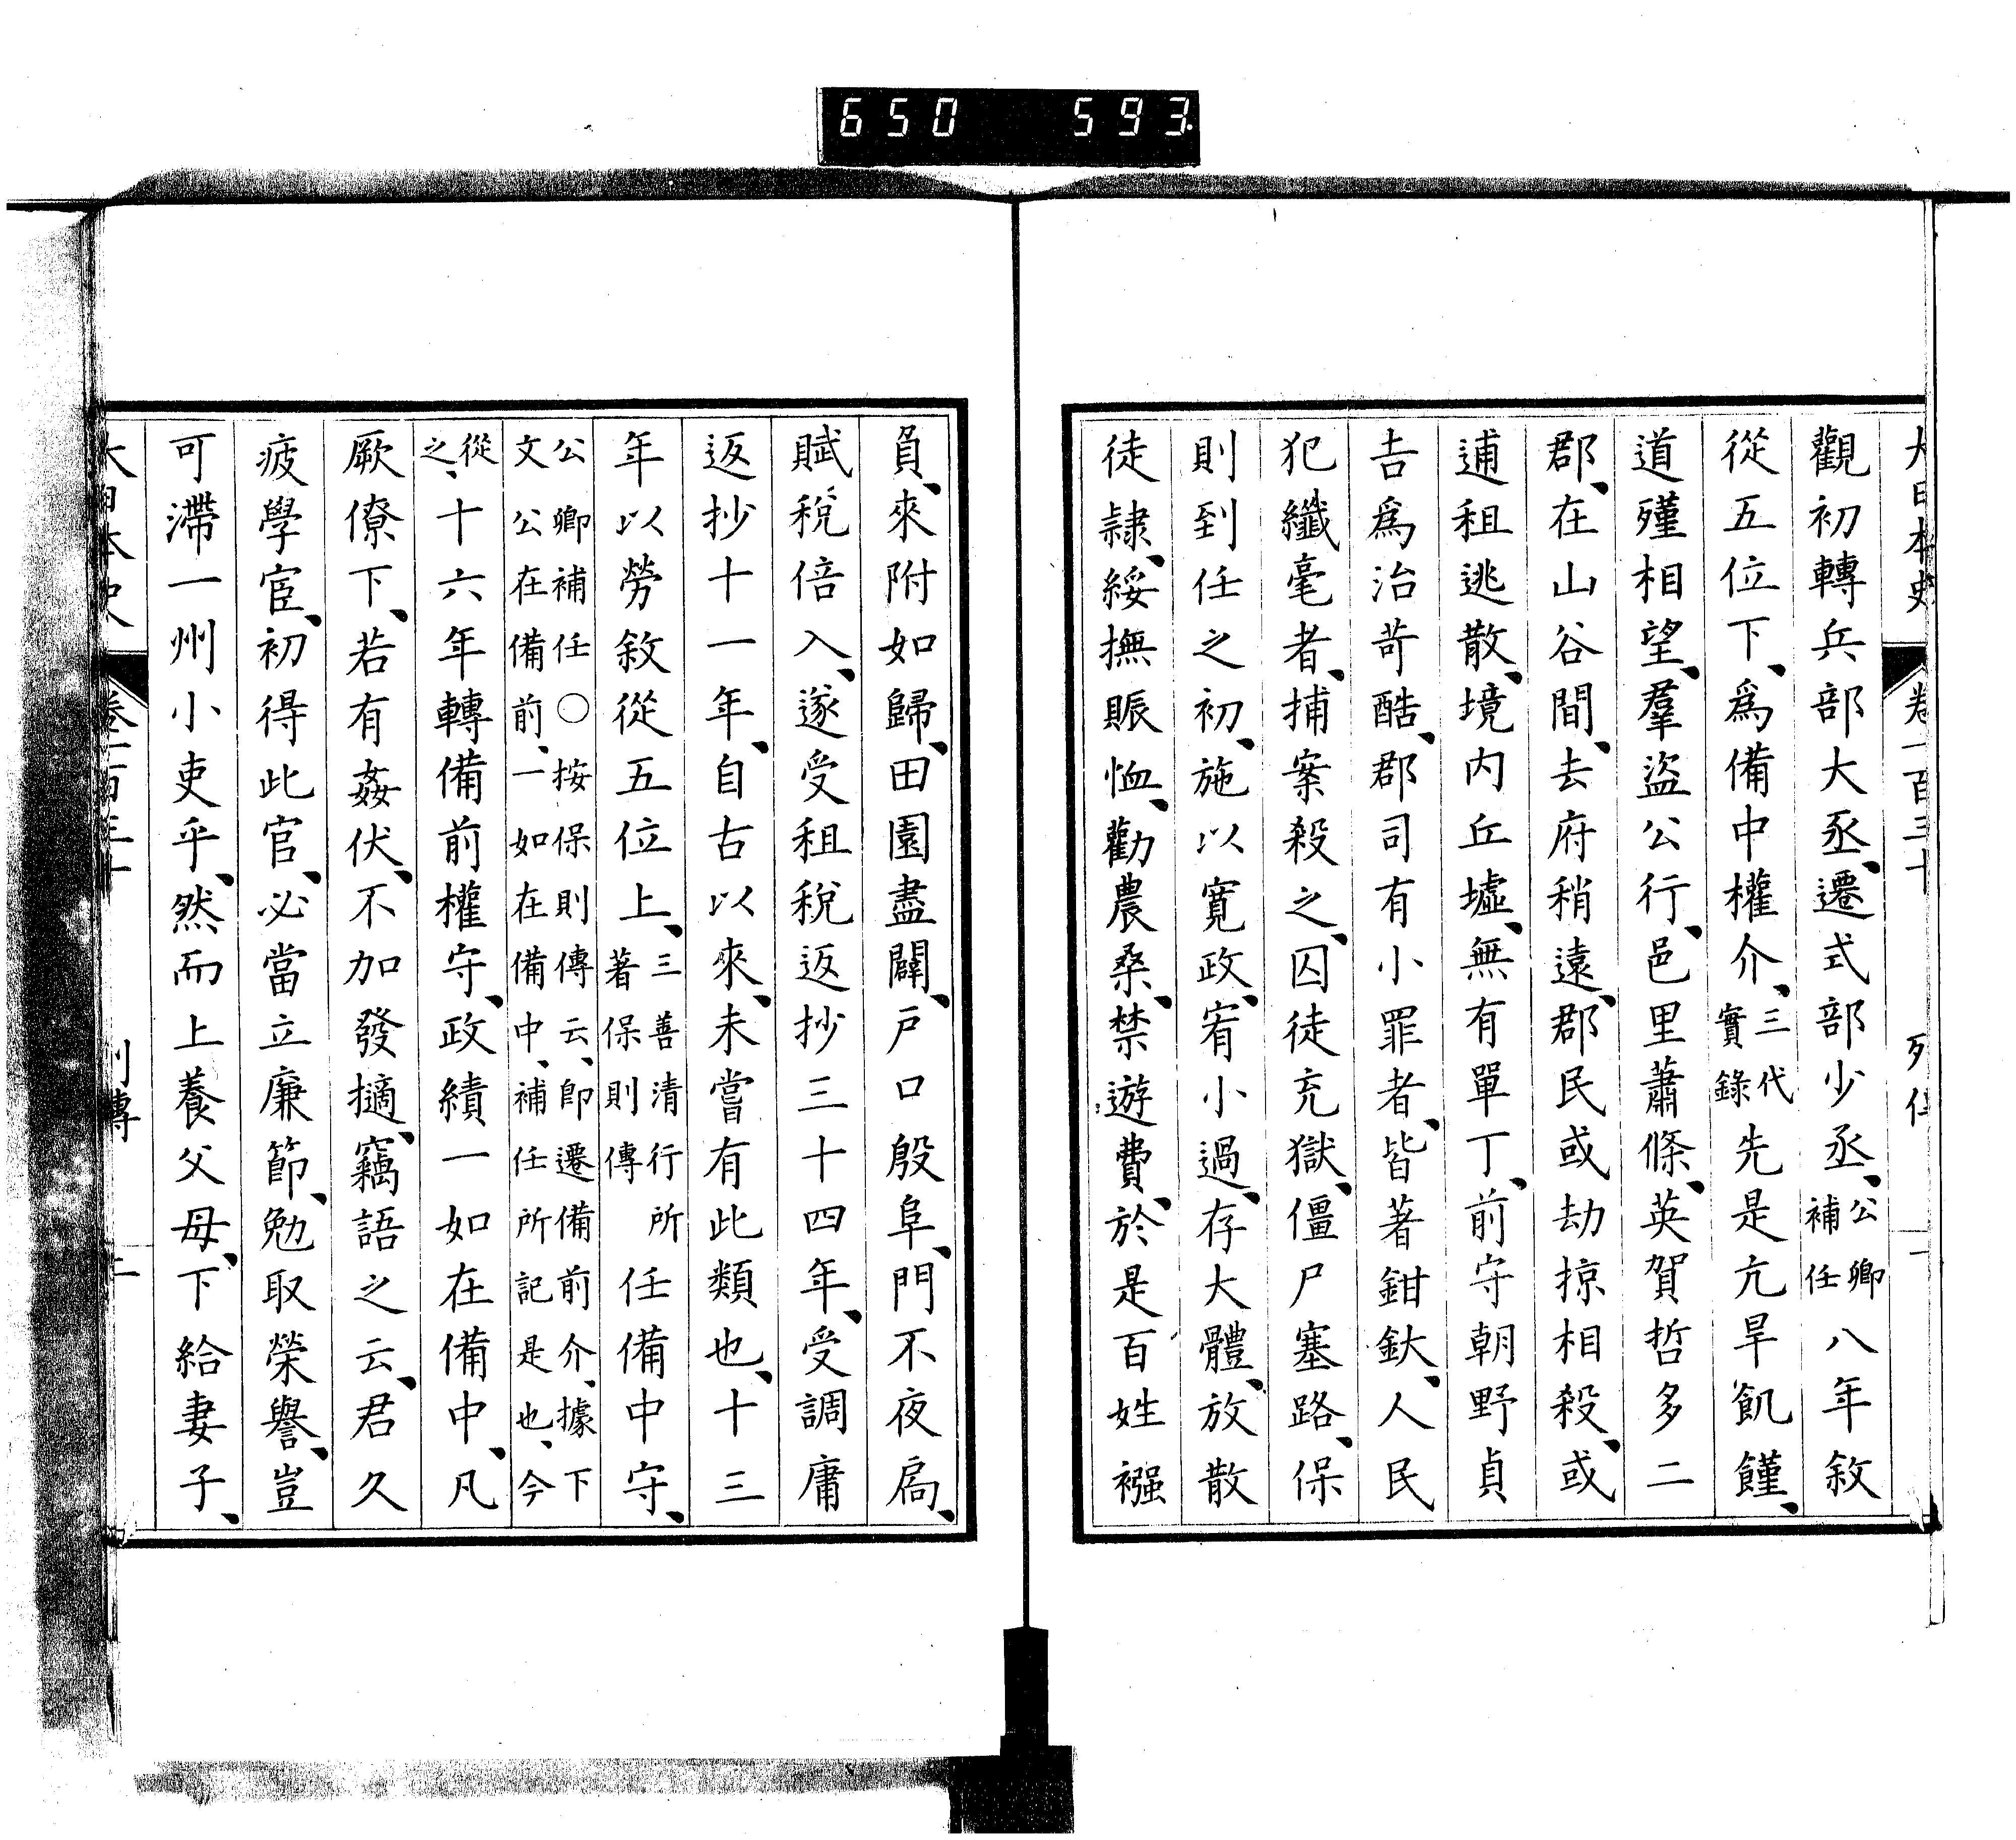 650 593.
大日本史 卷一百三十 列傳 一
觀初轉兵部大丞、遷式部少丞、公卿補任八年敘
從五位下、爲備中權介、三代實錄先是亢旱飢饉、
道殣相望、羣盜公行、邑里蕭條、英賀哲多二
郡、在山谷間、去府稍遠、郡民或劫掠相殺、或
逋租逃散、境内丘墟、無有單丁、前守朝野貞
吉爲治苛酷、郡司有小罪者、皆著鉗釱、人民
犯纖毫者、捕案殺之、囚徒充獄、僵尸塞路、保
則到任之初、施以寛政、宥小過、存大體、放散
徒隷、綏撫賑恤、勸農桑、禁遊費、於是百姓襁
負、來附如歸、田園盡闢、戸口殷阜、門不夜扃、
賦稅倍入、遂受租稅返抄三十四年、受調庸
返抄十一年、自古以來、未嘗有此類也、十三
年以勞敘從五位上、三善清行所著保則傳任備中守、
公卿補任○按保則傳云、卽遷備前介、據下
文公在備前、一如在備中、補任所記是也、今
從之、十六年轉備前權守、政績一如在備中、凡
厥僚下、若有姦伏、不加發擿、竊語之云、君久
疲學宦、初得此官、必當立廉節、勉取榮譽、豈
可滯一州小吏乎、然而上養父母、下給妻子、
大日本史 卷一百三十 列傳 二